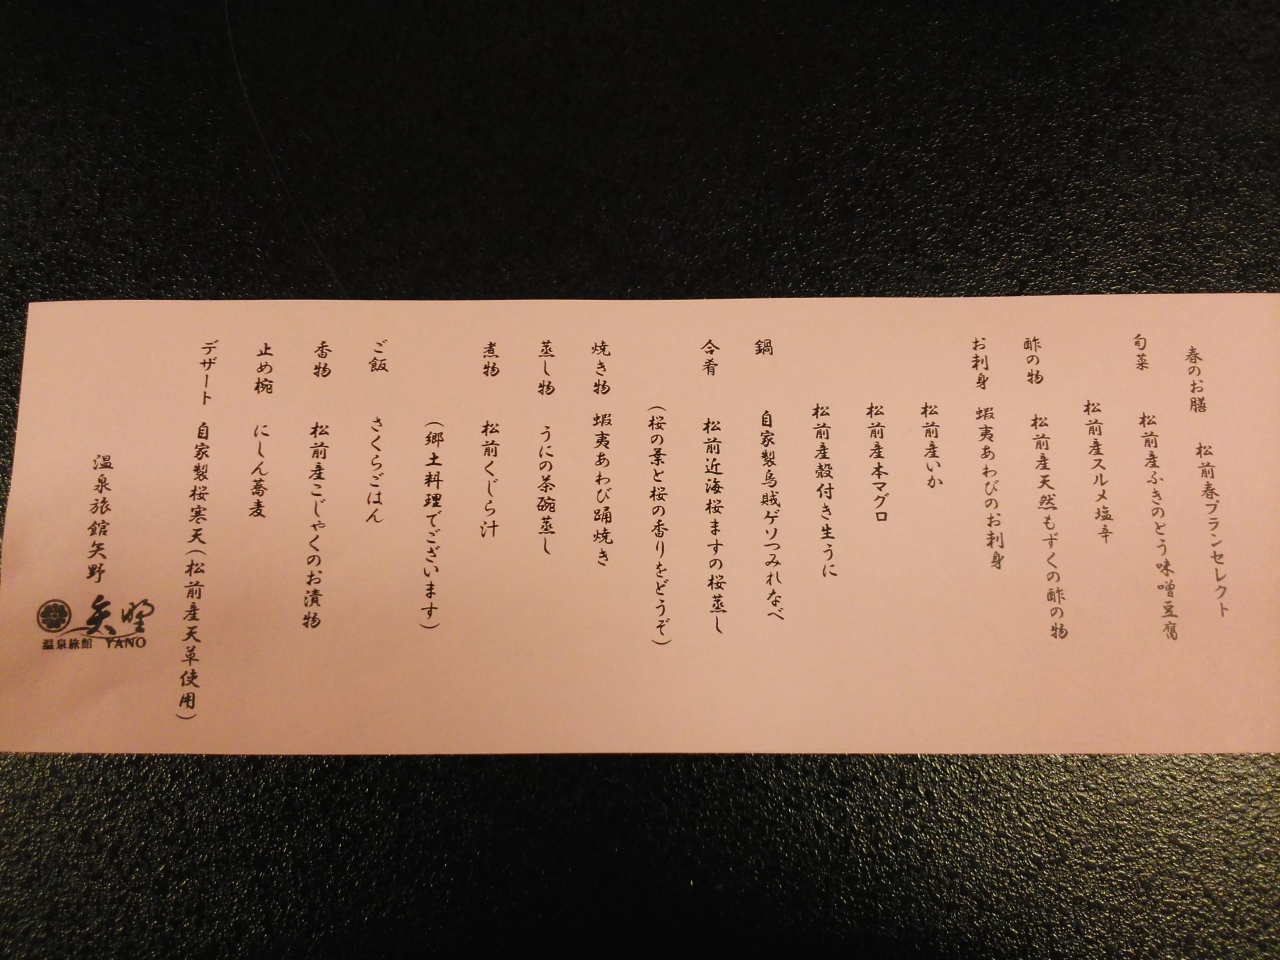 春のお膳 松前春プランセレクト
旬菜 松前産ふきのとう味噌豆腐
松前産スルメ塩辛
酢の物 松前産天然もずくの酢の物
お刺身 蝦夷あわびのお刺身
松前産いか
松前産本マグロ
松前産殻付き生うに
鍋 自家製烏賊ゲソつみれなべ
合肴 松前近海桜ますの桜蒸し
(桜の葉と桜の香りをどうぞ)
焼き物 蝦夷あわび踊焼き
蒸し物 うにの茶碗蒸し
煮物 松前くじら汁
(郷土料理でございます)
ご飯 さくらごはん
香物 松前産こじゃくのお漬物
止め椀 にしん蕎麦
デザート 自家製桜寒天(松前産天草使用)
温泉旅館矢野
矢野
温泉旅館 YANO